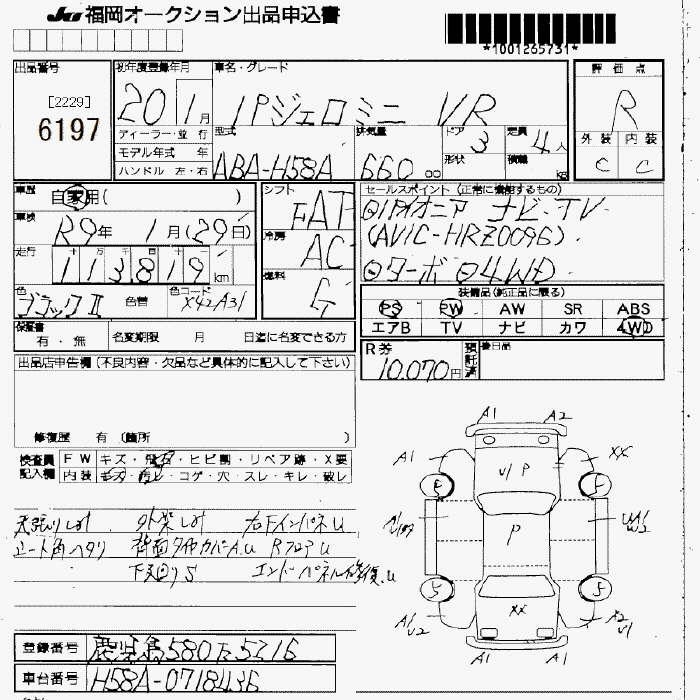 JU福岡オークション出品申込書
*1001265731*
出品番号
[2229]
6197
初年度登録年月
20 1月
ディーラー・並行
モデル年式 年
ハンドル 左・右
車名・グレード
パジェロミニ VR
型式
ABA-H58A
排気量
660 cc
ドア
3
形状
定員
4人
積載
kg
評価点
R
外装 内装
C C
車歴
自家用( )
車検
R9年 1月(29日)
走行
十 万 千 百 十 一
113819 km
色
ブラックⅡ
色替
色コード
X42A31
シフト
FAT
冷房
AC
燃料
G
セールスポイント(正常に機能するもの)
パイオニア ナビ・TV
(AVIC-HRZ009G)
ターボ 4WD
装備品(純正品に限る)
PS PW AW SR ABS
エアB TV ナビ カワ 4WD
保証書
有・無
名変期限 月 日迄に名変できる方
R券
10,070円
預託済
後日品
出品店申告欄(不良内容・欠品など具体的に記入して下さい)
修復歴 有 (箇所 )
検査員記入欄
FW キズ・飛石・ヒビ割・リペア跡・X要
内装 キズ・汚レ・コゲ・穴・スレ・キレ・破レ
外装しみ 右FインパネU
シート角ヘタリ 背面タイヤカバーA.U RフロアU
下回りS エンドパネル修復.U
A1 A2
A1 XX
U/P
P
XX
S S
A1 U2
A2 U1
A1 A1
登録番号
鹿児島580 5216
車台番号
H58A-0718436